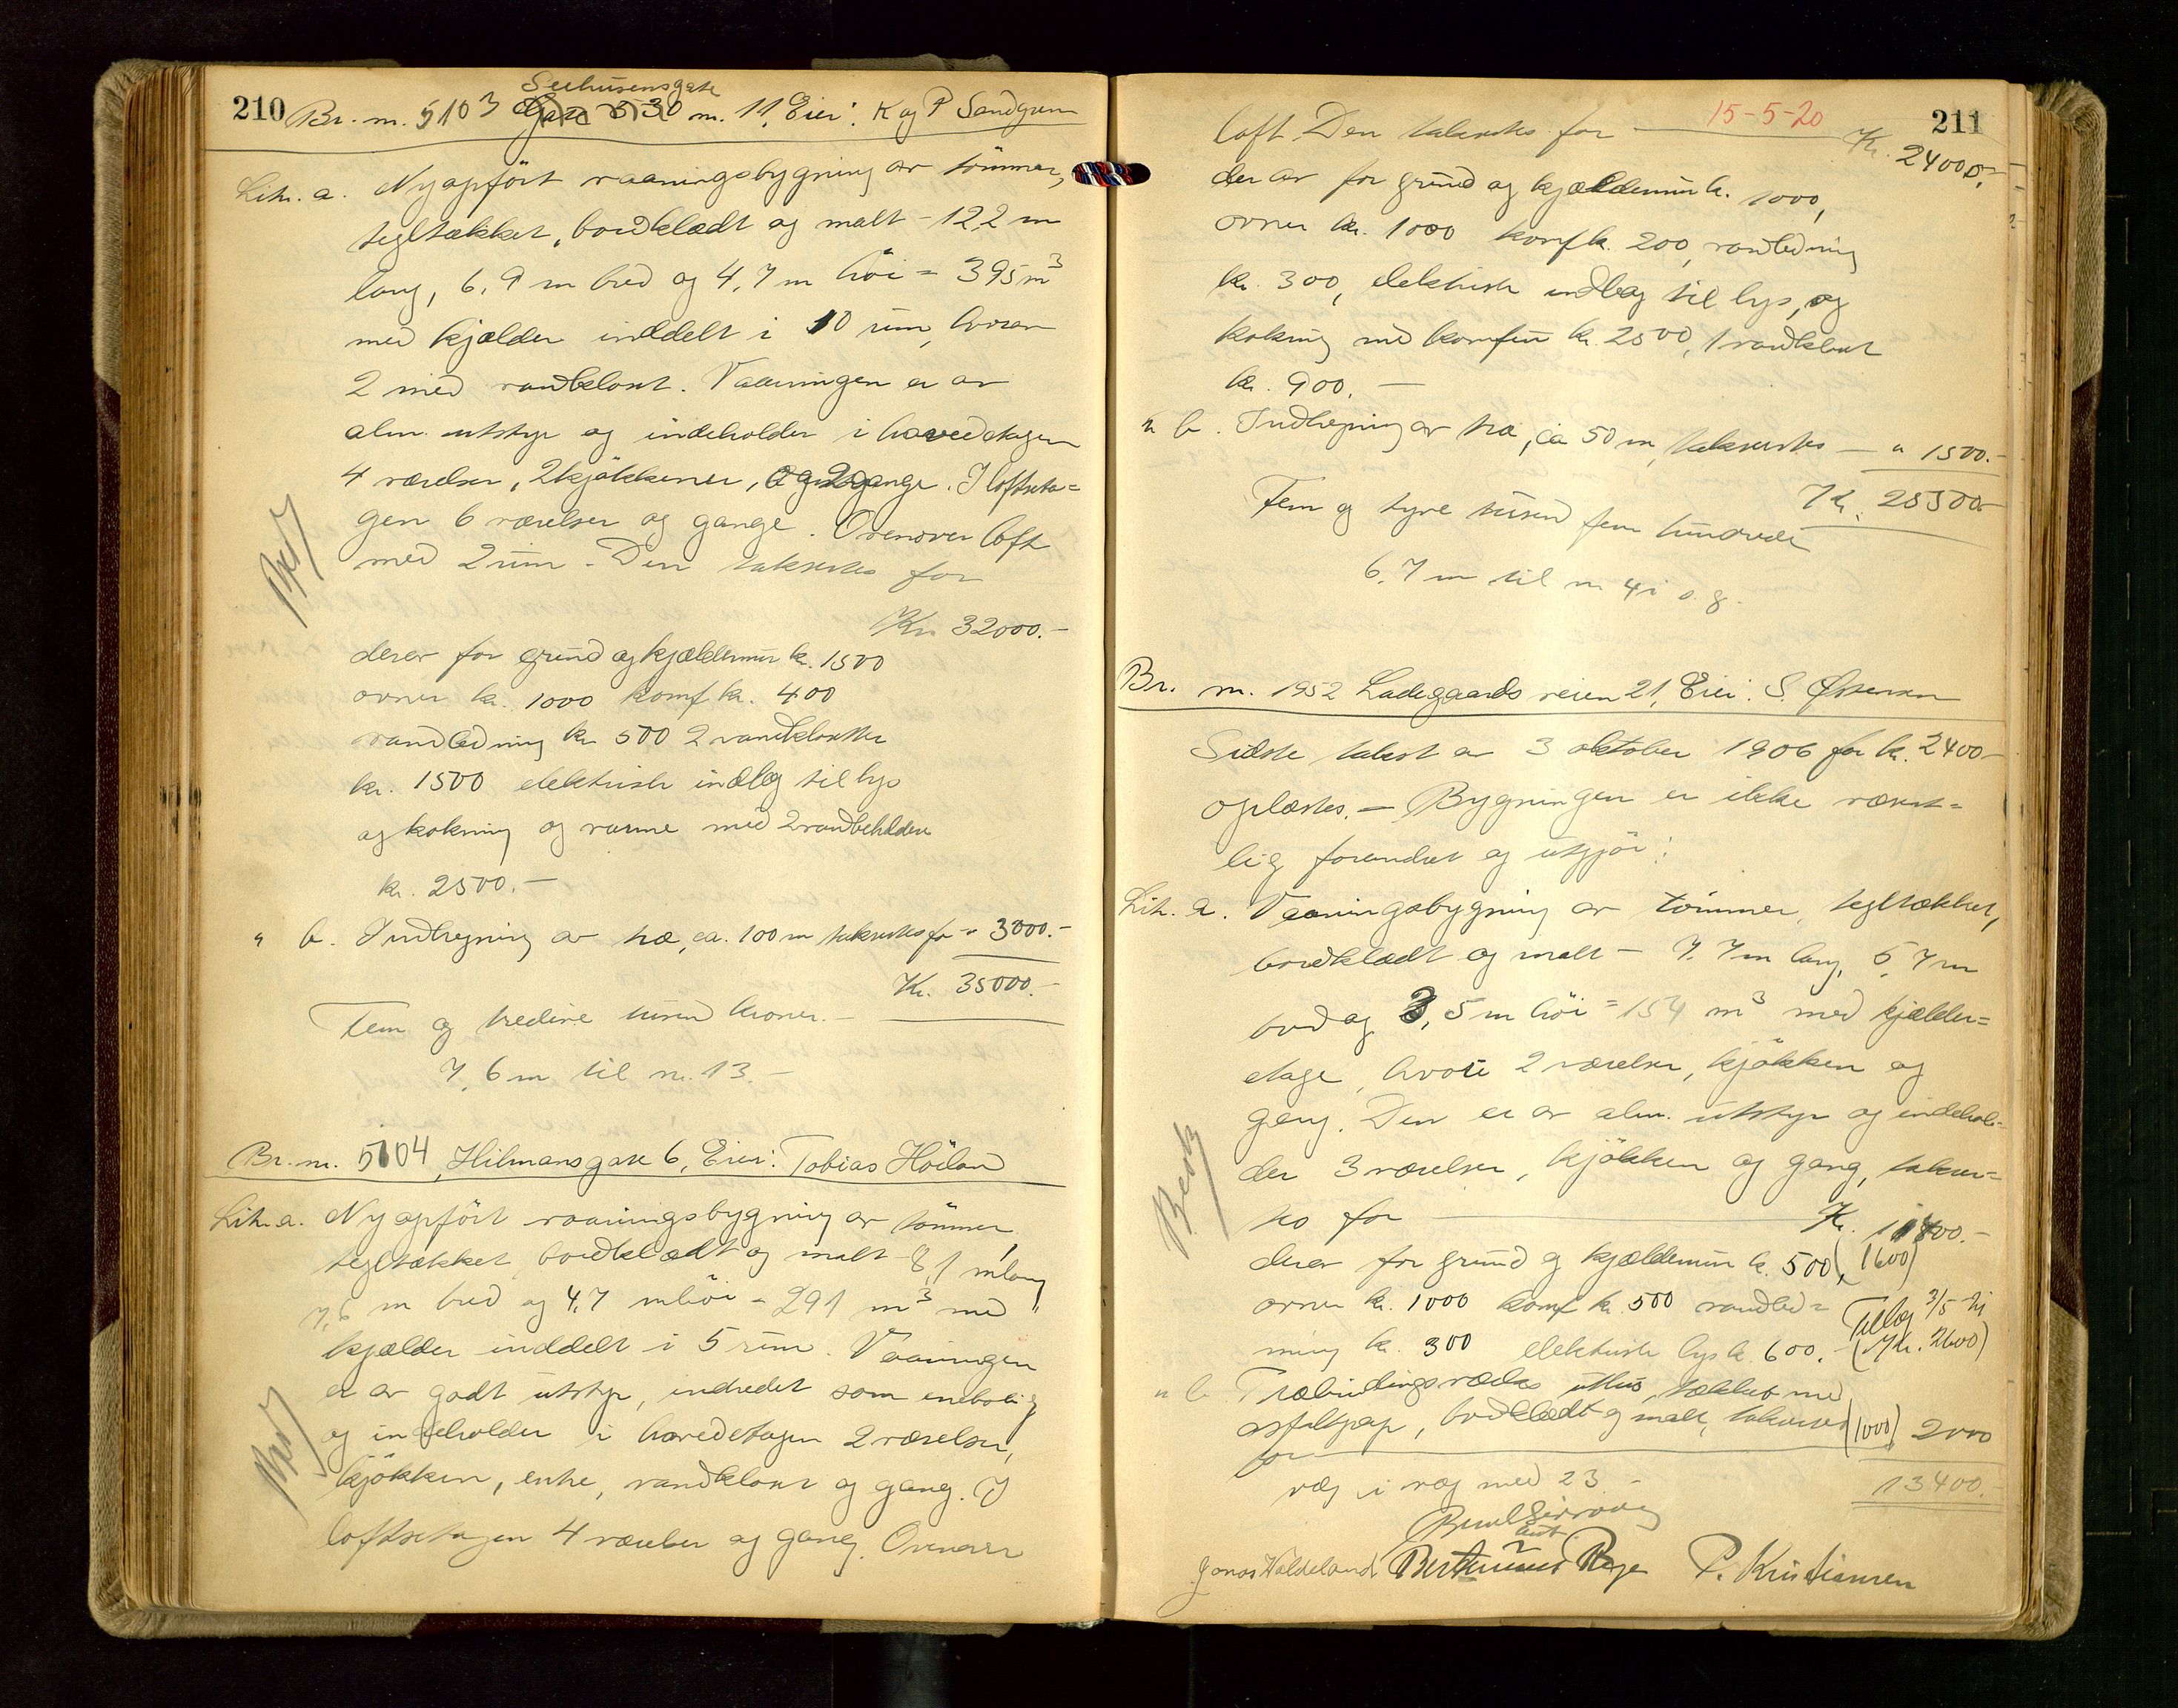 210
Seehusensgate
Br. nr. 5103 Gate 330 nr. 11, Eier: K og P Sandgren
Litr. a. Nyopført vaaningsbygning av tømmer,
tegltækket, bordklædt og malt - 12,2 m
lang, 6,9 m bred og 4,7 m høi = 395 m³
med kjælder inddelt i 10 rum, hvorav
2 med vandkloset. Vaaningen er av
alm. utstyr og indeholder i hovedetagen
4 værelser, 2 kjøkkener, og 2 gange. I loftseta=
gen 6 værelser og gange. Ovenover loft
med 2 rum. - Den takseres for
Kr. 32000.-
derav for grund og kjældermur kr. 1500
ovner kr. 1000 komf kr. 400
vandledning kr 500 2 vandklosetter
kr. 1500 elektrisk indlæg til lys
og kokning og varme med 2 vandbeholdere
kr. 2500.-
" b. Indhegning av træ, ca. 100 m takseres for - " 3000.-
Kr. 35000.-
Fem og tredive tusend kroner. -
7,6 m til nr. 13. -
Br. nr. 5104, Hilmansgate 6, Eier: Tobias Höiland
Litr. a. Nyopført vaaningsbygning av tømmer,
tegltækket, bordklædt og malt - 8,1 m lang,
7,6 m bred og 4,7 m høi = 291 m³ med
kjælder inddelt i 5 rum. Vaaningen
er av godt utstyr, indredet som enebolig
og indeholder i hovedetagen 2 værelser,
kjøkken, entre, vandkloset og gang. I
loftsetagen 4 værelser og gang. Ovenover
15-5-20
211
loft Den takseres for Kr. 24000.-
der av for grund og kjældermur k. 1000,
ovner kr. 1000 komf k. 200, vandledning
kr. 300, elektrisk indlæg til lys, og
kokning med komfur kr. 2500, 1 vandkloset
kr. 900. -
" b. Indhegning av træ, ca 50 m, takseres - " 1500.-
Kr. 25500.-
Fem og tyve tusend fem hundrede
6,7 m til nr. 4 i s. g.
Br. nr. 1952 Ladegaardsveien 21, Eier: S. Østensen
Sidste takst av 3 oktober 1906 for kr. 2400-
oplæstes. - Bygningen er ikke væsent=
lig forandret og utgjør:
Litr. a. Vaaningsbygning av tømmer, tegltækket,
bordklædt og malt - 7,7 m lang, 5,7 m
bred og 3,5 m høi = 154 m³ med kjælder=
etage, hvori 2 værelser, kjøkken og
gang. Den er av alm. utstyr og indehol=
der 3 værelser, kjøkken og gang, takser=
es for Kr. 11400.-
derav for grund og kjældermur k. 500, (1600)
ovner kr. 1000 komf kr. 500 vandled=
ning k. 300 elektrisk lys k. 600. - (Kr. 2600)
" b. Træbindingsværks uthus, tækket med
asfaltpap, bordklædt og malt, takseres (1000) 2000
for
væg i væg med 23 -
13400.-
Jonas Haldeland Berthinius Rege P. Kristiansen